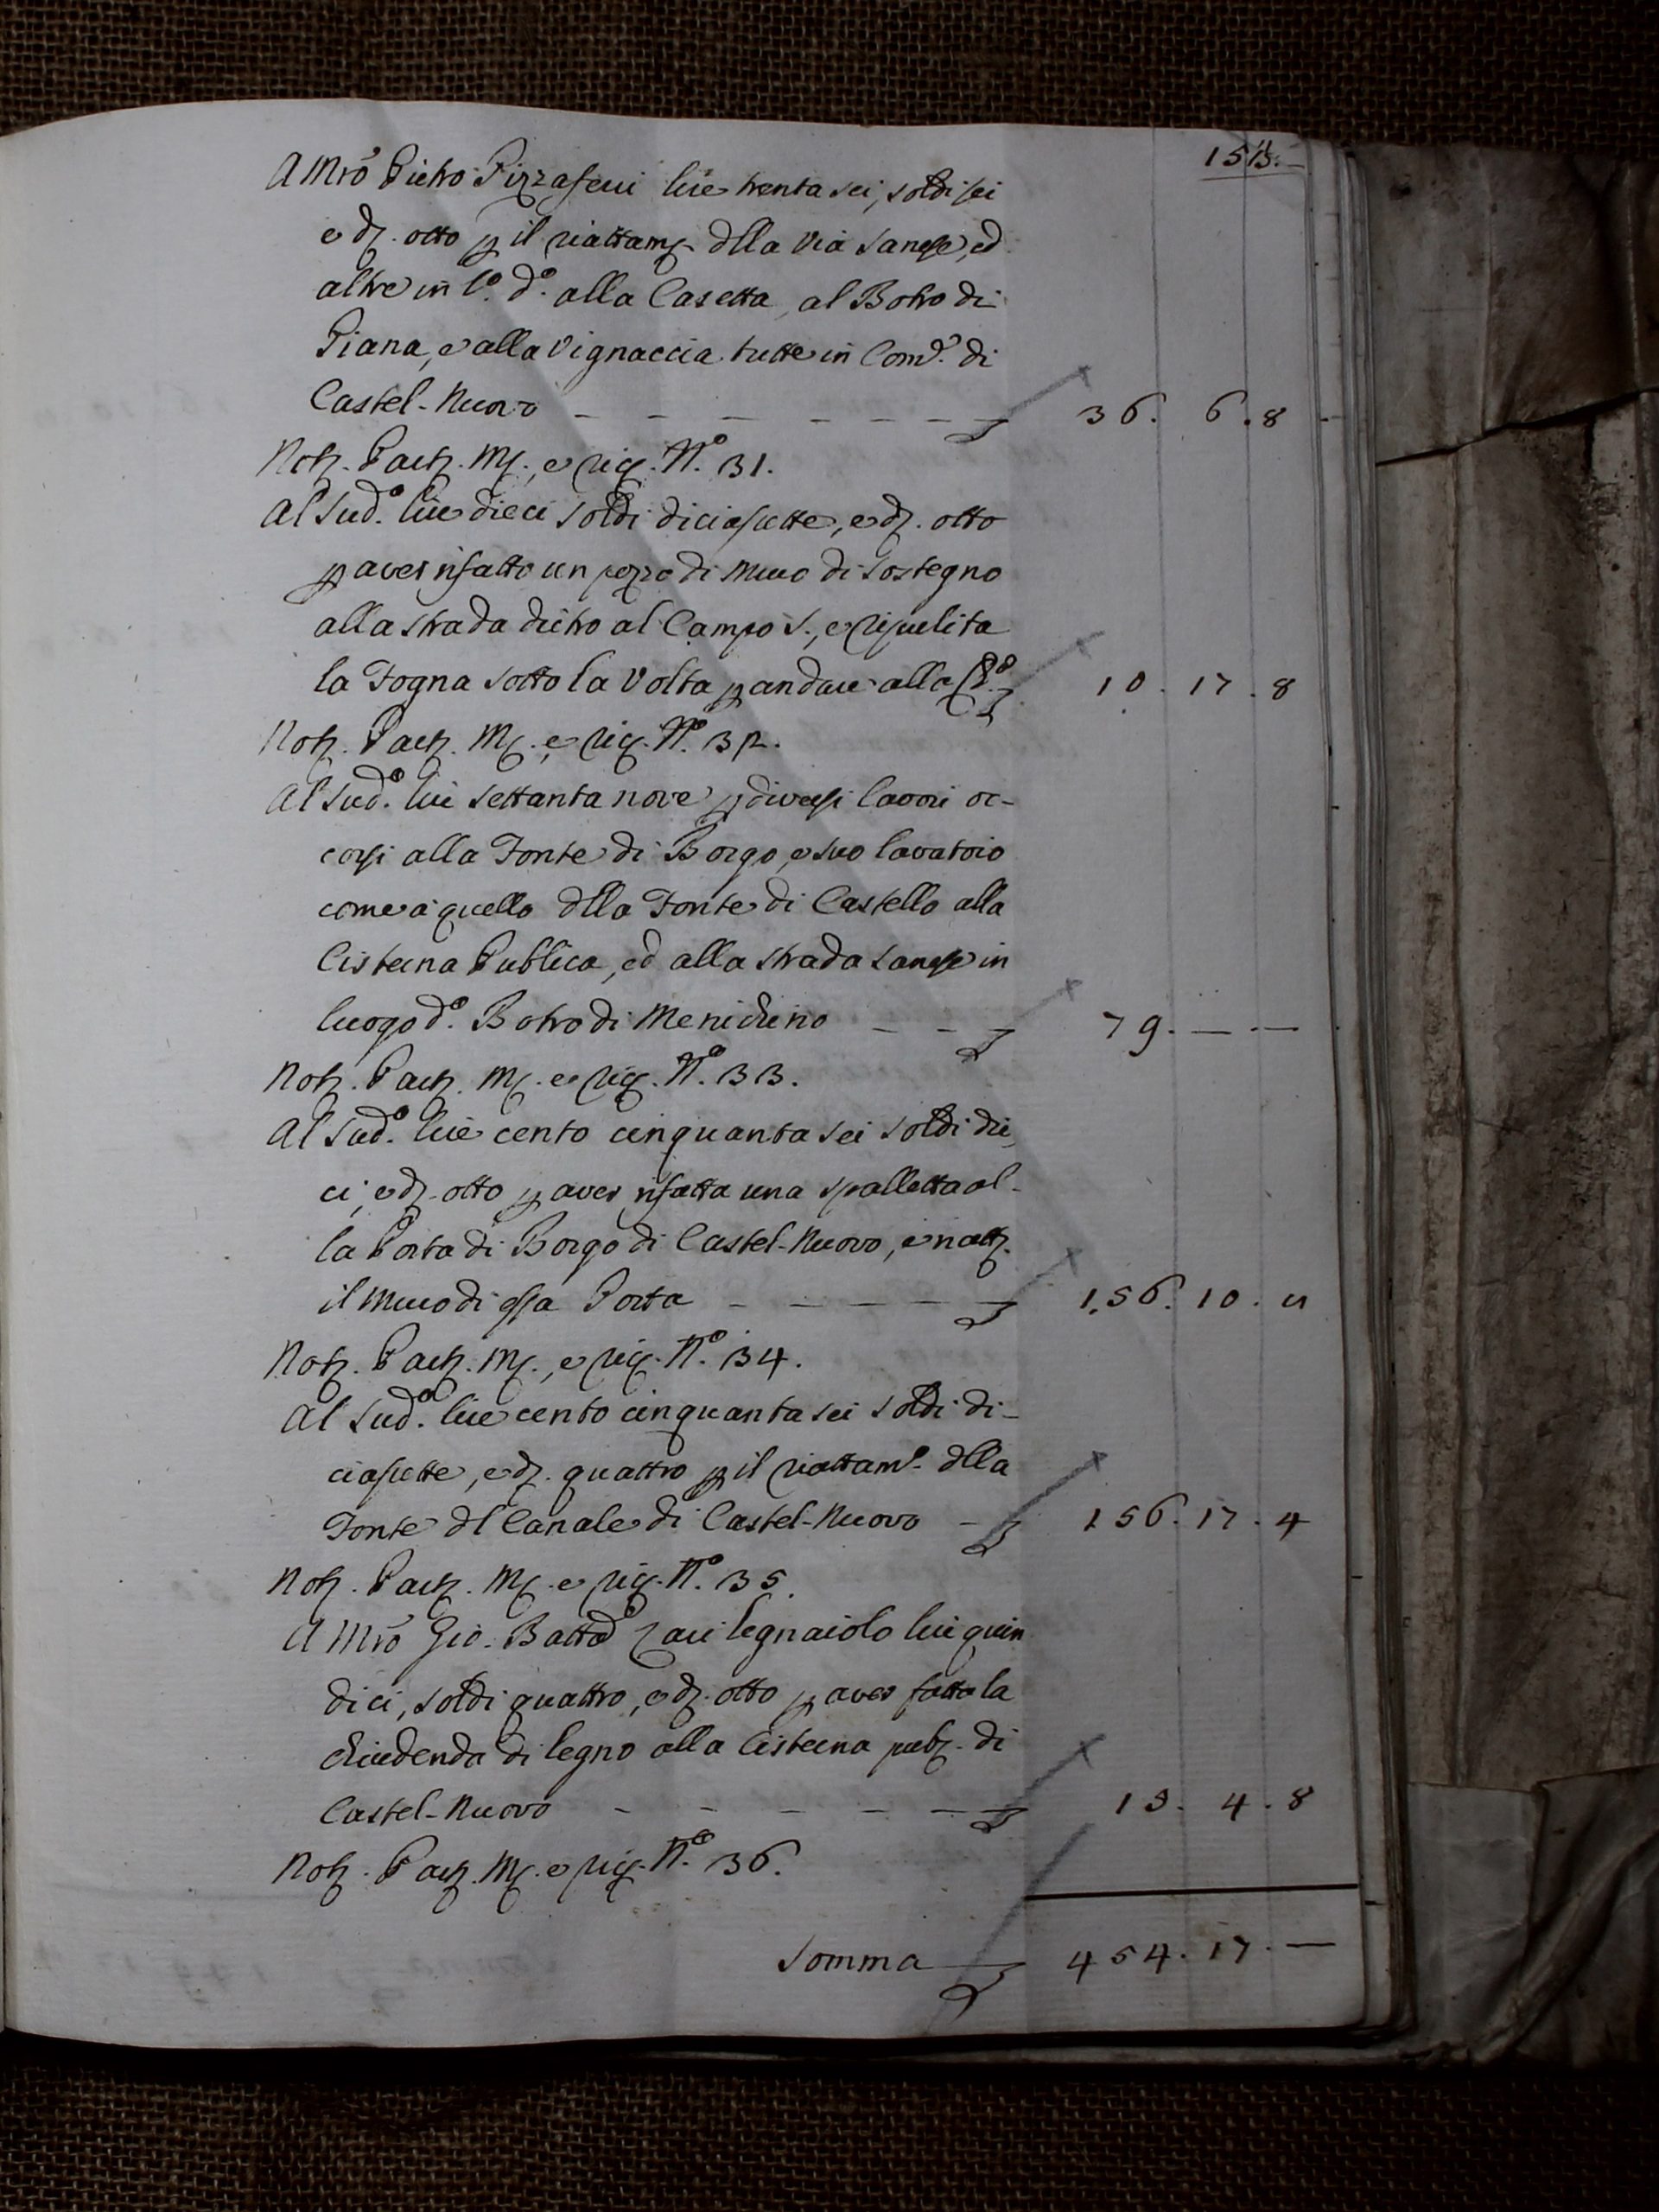 1513.
A Mrō Pietro Pizzaferri lire trenta sei, soldi sei
e dz. otto p il riattamz. dlla Via Sanese, ed
altre in l.º d.º alla Casetta, al Botro di
Piana, e alla Vignaccia tutte in Com.e di
Castel-Nuovo — — — — — — — 36. 6. 8
Notz. Partz. Mz., e ricz. N.º 31.
Al Sud.º lire dieci soldi diciasette, e dz. otto
p aver rifatto un pezzo di Muro di Sostegno
alla strada dietro al Campo S., e ripulita
la Fogna sotto la Volta p andare alla 10. 17. 8
Notz. Partz. Mz. e ricz. N.º 32.
Al Sud.º lire settanta nove p diversi lavori oc-
corsi alla Fonte di Borgo, e suo lavatoio
come a quello dlla Fonte di Castello alla
Cisterna Publica, ed alla strada Sanese in
luogo d.º Botro di Menichino — — — 79. — —
Notz. Partz. Mz. e ricz. N.º 33.
Al Sud.º lire cento cinquanta sei soldi die,
ci, e dz. otto p aver rifatta una spalletta al-
la Porta di Borgo di Castel-Nuovo, e riattz.
il Muro di essa Porta — — — — — 156. 10. u
Notz. Partz. Mz., e ricz. N.º 34.
Al Sud.º lire cento cinquanta sei soldi di-
ciasette, e dz. quattro p il riattam.º dlla
Fonte dl Canale di Castel-Nuovo — 156. 17. 4
Notz. Partz. Mz. e ricz. N.º 35.
A Mrō Gio. Batta legnaiolo lire quin
dici, soldi quattro, e dz. otto p aver fatto la
chiudenda di legno alla Cisterna pubz. di
Castel-Nuovo — — — — — — 15. 4. 8
Notz. Partz. Mz. e ricz. N.º 36.
Somma 454. 17. —